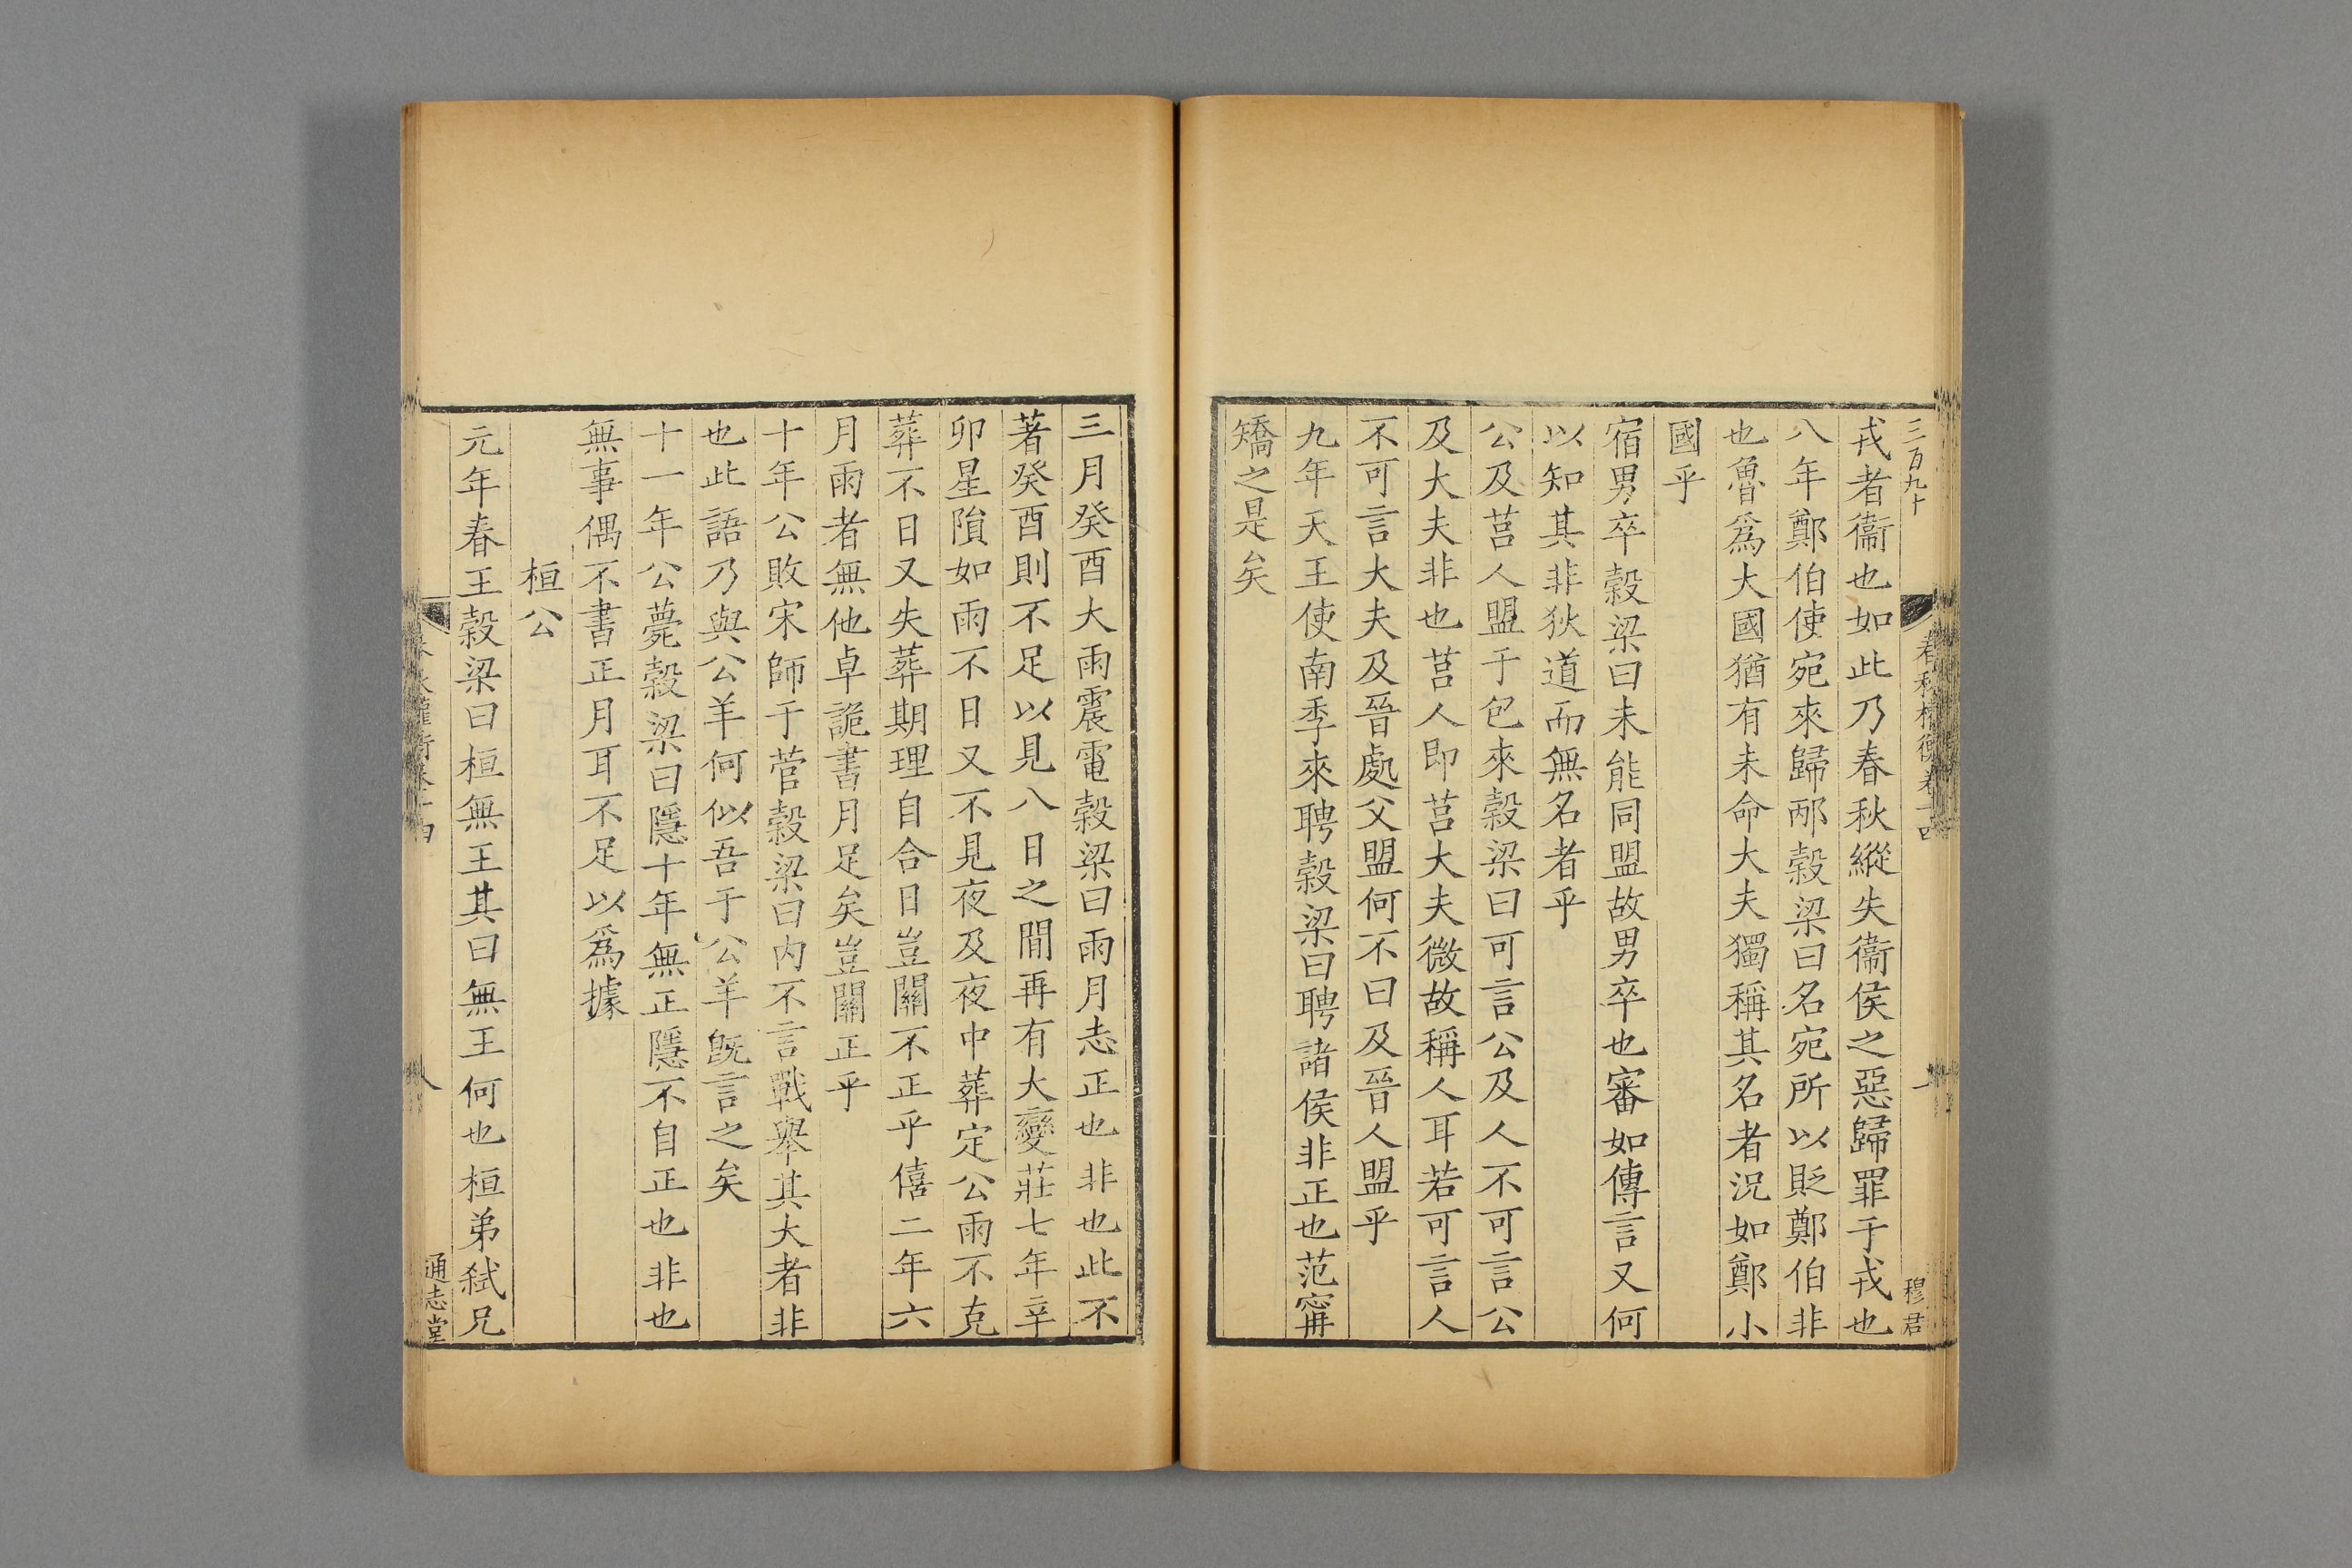 三百九十
春秋權衡卷十四
穆君
戎者衞也如此乃春秋縱失衞侯之惡歸罪于戎也
八年鄭伯使宛來歸邴穀梁曰名宛所以貶鄭伯非
也魯爲大國猶有未命大夫獨稱其名者況如鄭小
國乎
宿男卒穀梁曰未能同盟故男卒也審如傳言又何
以知其非狄道而無名者乎
公及莒人盟于包來穀梁曰可言公及人不可言公
及大夫非也莒人即莒大夫微故稱人耳若可言人
不可言大夫及晉處父盟何不曰及晉人盟乎
九年天王使南季來聘穀梁曰聘諸侯非正也范甯
矯之是矣
三月癸酉大雨震電穀梁曰雨月志正也非也此不
著癸酉則不足以見八日之間再有大變莊七年辛
卯星隕如雨不日又不見夜及夜中葬定公雨不克
葬不日又失葬期理自合日豈關不正乎僖二年六
月雨者無他卓詭書月足矣豈關正乎
十年公敗宋師于菅穀梁曰內不言戰舉其大者非
也此語乃與公羊何似吾于公羊旣言之矣
十一年公薨穀梁曰隱十年無正隱不自正也非也
無事偶不書正月耳不足以爲據
桓公
元年春王穀梁曰桓無王其曰無王何也桓弟弑兄
春秋權衡卷十四
八
通志堂